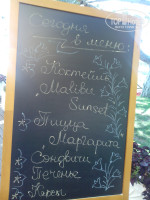 Сегодня
в меню:
Коктейль
Malibu
Sunset
Пицца
Маргарита
Сэндвичи
Печенье
Кексы